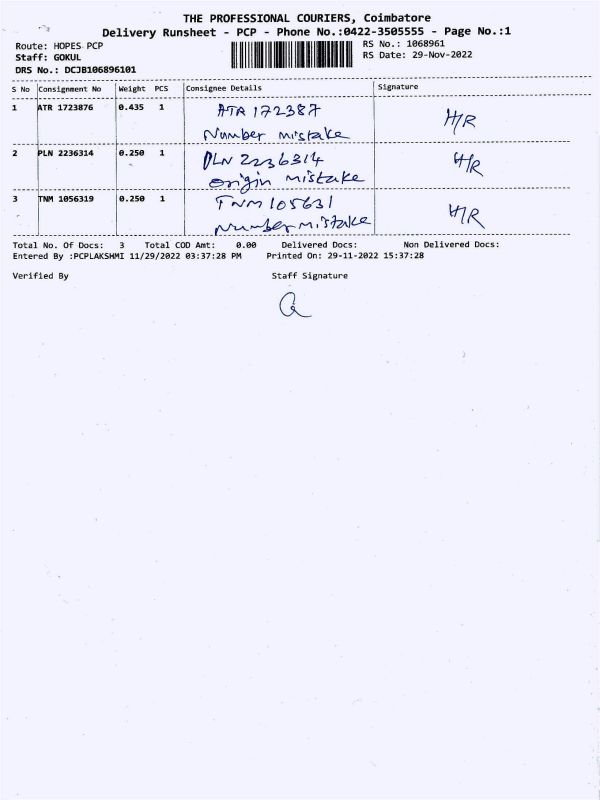 THE PROFESSIONAL COURIERS, Coimbatore
Delivery Runsheet - PCP - Phone No.:0422-3505555 - Page No.:1
Route: HOPES PCP
RS No.: 1068961
Staff: GOKUL
RS Date: 29-Nov-2022
DRS No.: DCJB106896101
S No Consignment No Weight PCS Consignee Details Signature
1 ATR 1723876 0.435 1 ATR 172387 H/R
Number mistake
2 PLN 2236314 0.250 1 PLN 2236314 H/R
origin mistake
3 TNM 1056319 0.250 1 TNM 105631 H/R
Number mistake
Total No. Of Docs: 3 Total COD Amt: 0.00 Delivered Docs: Non Delivered Docs:
Entered By :PCPLAKSHMI 11/29/2022 03:37:28 PM Printed On: 29-11-2022 15:37:28
Verified By Staff Signature